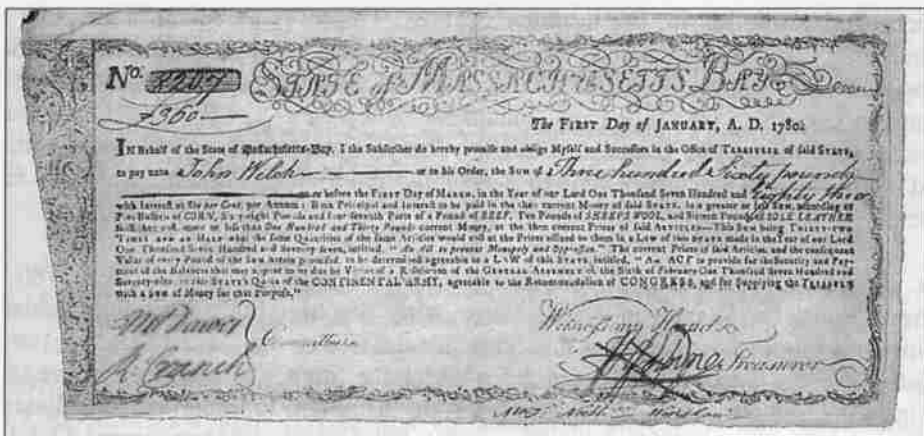 No. 8207 STATE of MASSACHUSETTS BAY
£360
The FIRST Day of JANUARY, A. D. 1780.
IN Behalf of the State of Massachusetts-Bay, I the Subscriber do hereby promise and oblige Myself and Successors in the Office of TREASURER of said STATE,
to pay unto John Welch or to his Order, the Sum of Three hundred Sixty pounds
on or before the FIRST Day of MARCH, in the Year of our Lord One Thousand Seven Hundred and Eighty three
with Interest at Six per Cent. per Annum: Both Principal and Interest to be paid in the then current Money of said STATE, in a greater or less SUM, according as
Five Bushels of CORN, Sixty-eight Pounds and four-seventh Parts of a Pound of BEEF, Ten Pounds of SHEEPS WOOL, and Sixteen Pounds of SOLE LEATHER
shall then cost, more or less than One Hundred and Thirty Pounds current Money, at the then current Prices of said ARTICLES—This SUM being THIRTY-TWO
TIMES and an HALF what the same Quantities of the same Articles would cost at the Prices affixed to them in a LAW of this STATE made in the Year of our Lord
One Thousand Seven Hundred and Seventy-seven, intitled, "An Act to prevent Monopoly and Oppression." The current Prices of said Articles, and the consequent
Value of every Pound of the SUM herein promised, to be determined agreeable to a LAW of this STATE, intitled, "An ACT to provide for the Security and Pay-
ment of the Balances that may appear to be due by Virtue of a Resolution of the GENERAL ASSEMBLY of the Sixth of February One Thousand Seven Hundred and
Seventy-nine, to this STATE's Quota of the CONTINENTAL ARMY, agreeable to the Recommendation of CONGRESS, and for Supplying the TREASURY
with a SUM of Money for that Purpose."
Witness my Hand
Committee
R Cranch
Treasurer